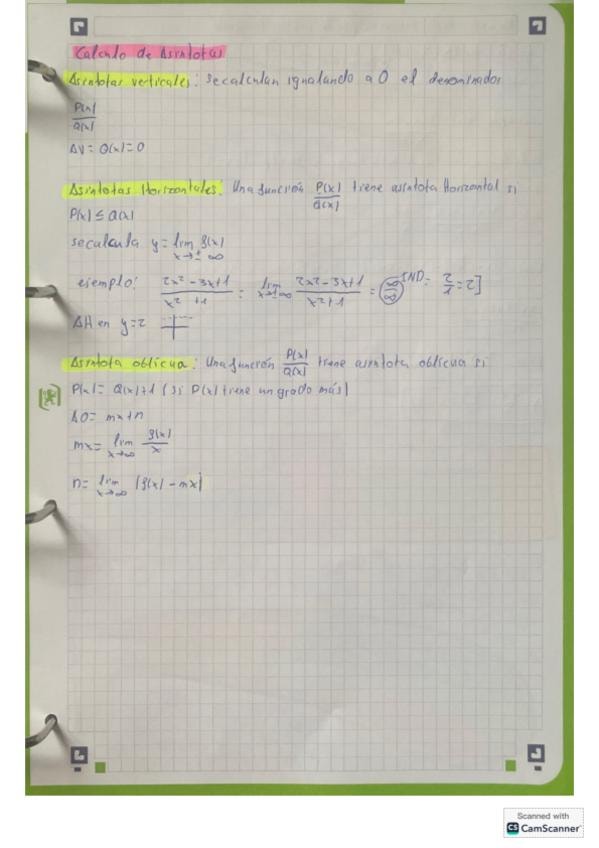 Calculo de Asintotas
Asintotas verticales: se calculan igualando a 0 el denominador
P(x)/Q(x)
AV = Q(x)=0
Asintotas Horizontales: Una función P(x)/Q(x) tiene asintota Horizontal si
P(x) ≤ Q(x)
se calcula y = lim x→±∞ f(x)
ejemplo: 2x²-3x+1/x²+1 = lim x→±∞ 2x²-3x+1/x²+1 = (∞/∞) IND = 2/1 = 2]
AH en y=2
Asintota oblicua: Una función P(x)/Q(x) tiene asintota oblicua si
P(x) = Q(x)+1 (si P(x) tiene un grado más)
AO = mx+n
mx = lim x→∞ f(x)/x
n = lim x→∞ [f(x) - mx]
Scanned with
CS CamScanner